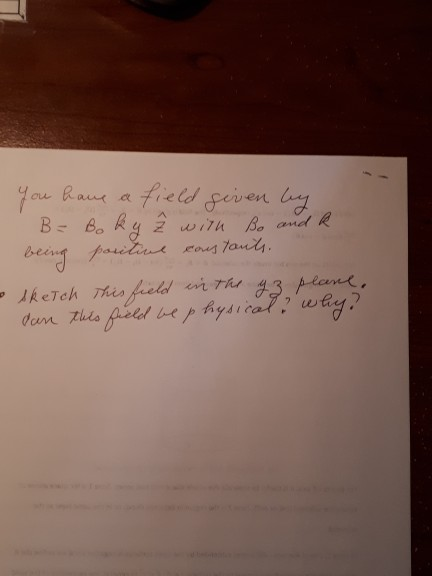 You have a field given by
B = B₀ k y ẑ with B₀ and k
being positive constants.
• Sketch this field in the yz plane.
Can this field be physical? Why?